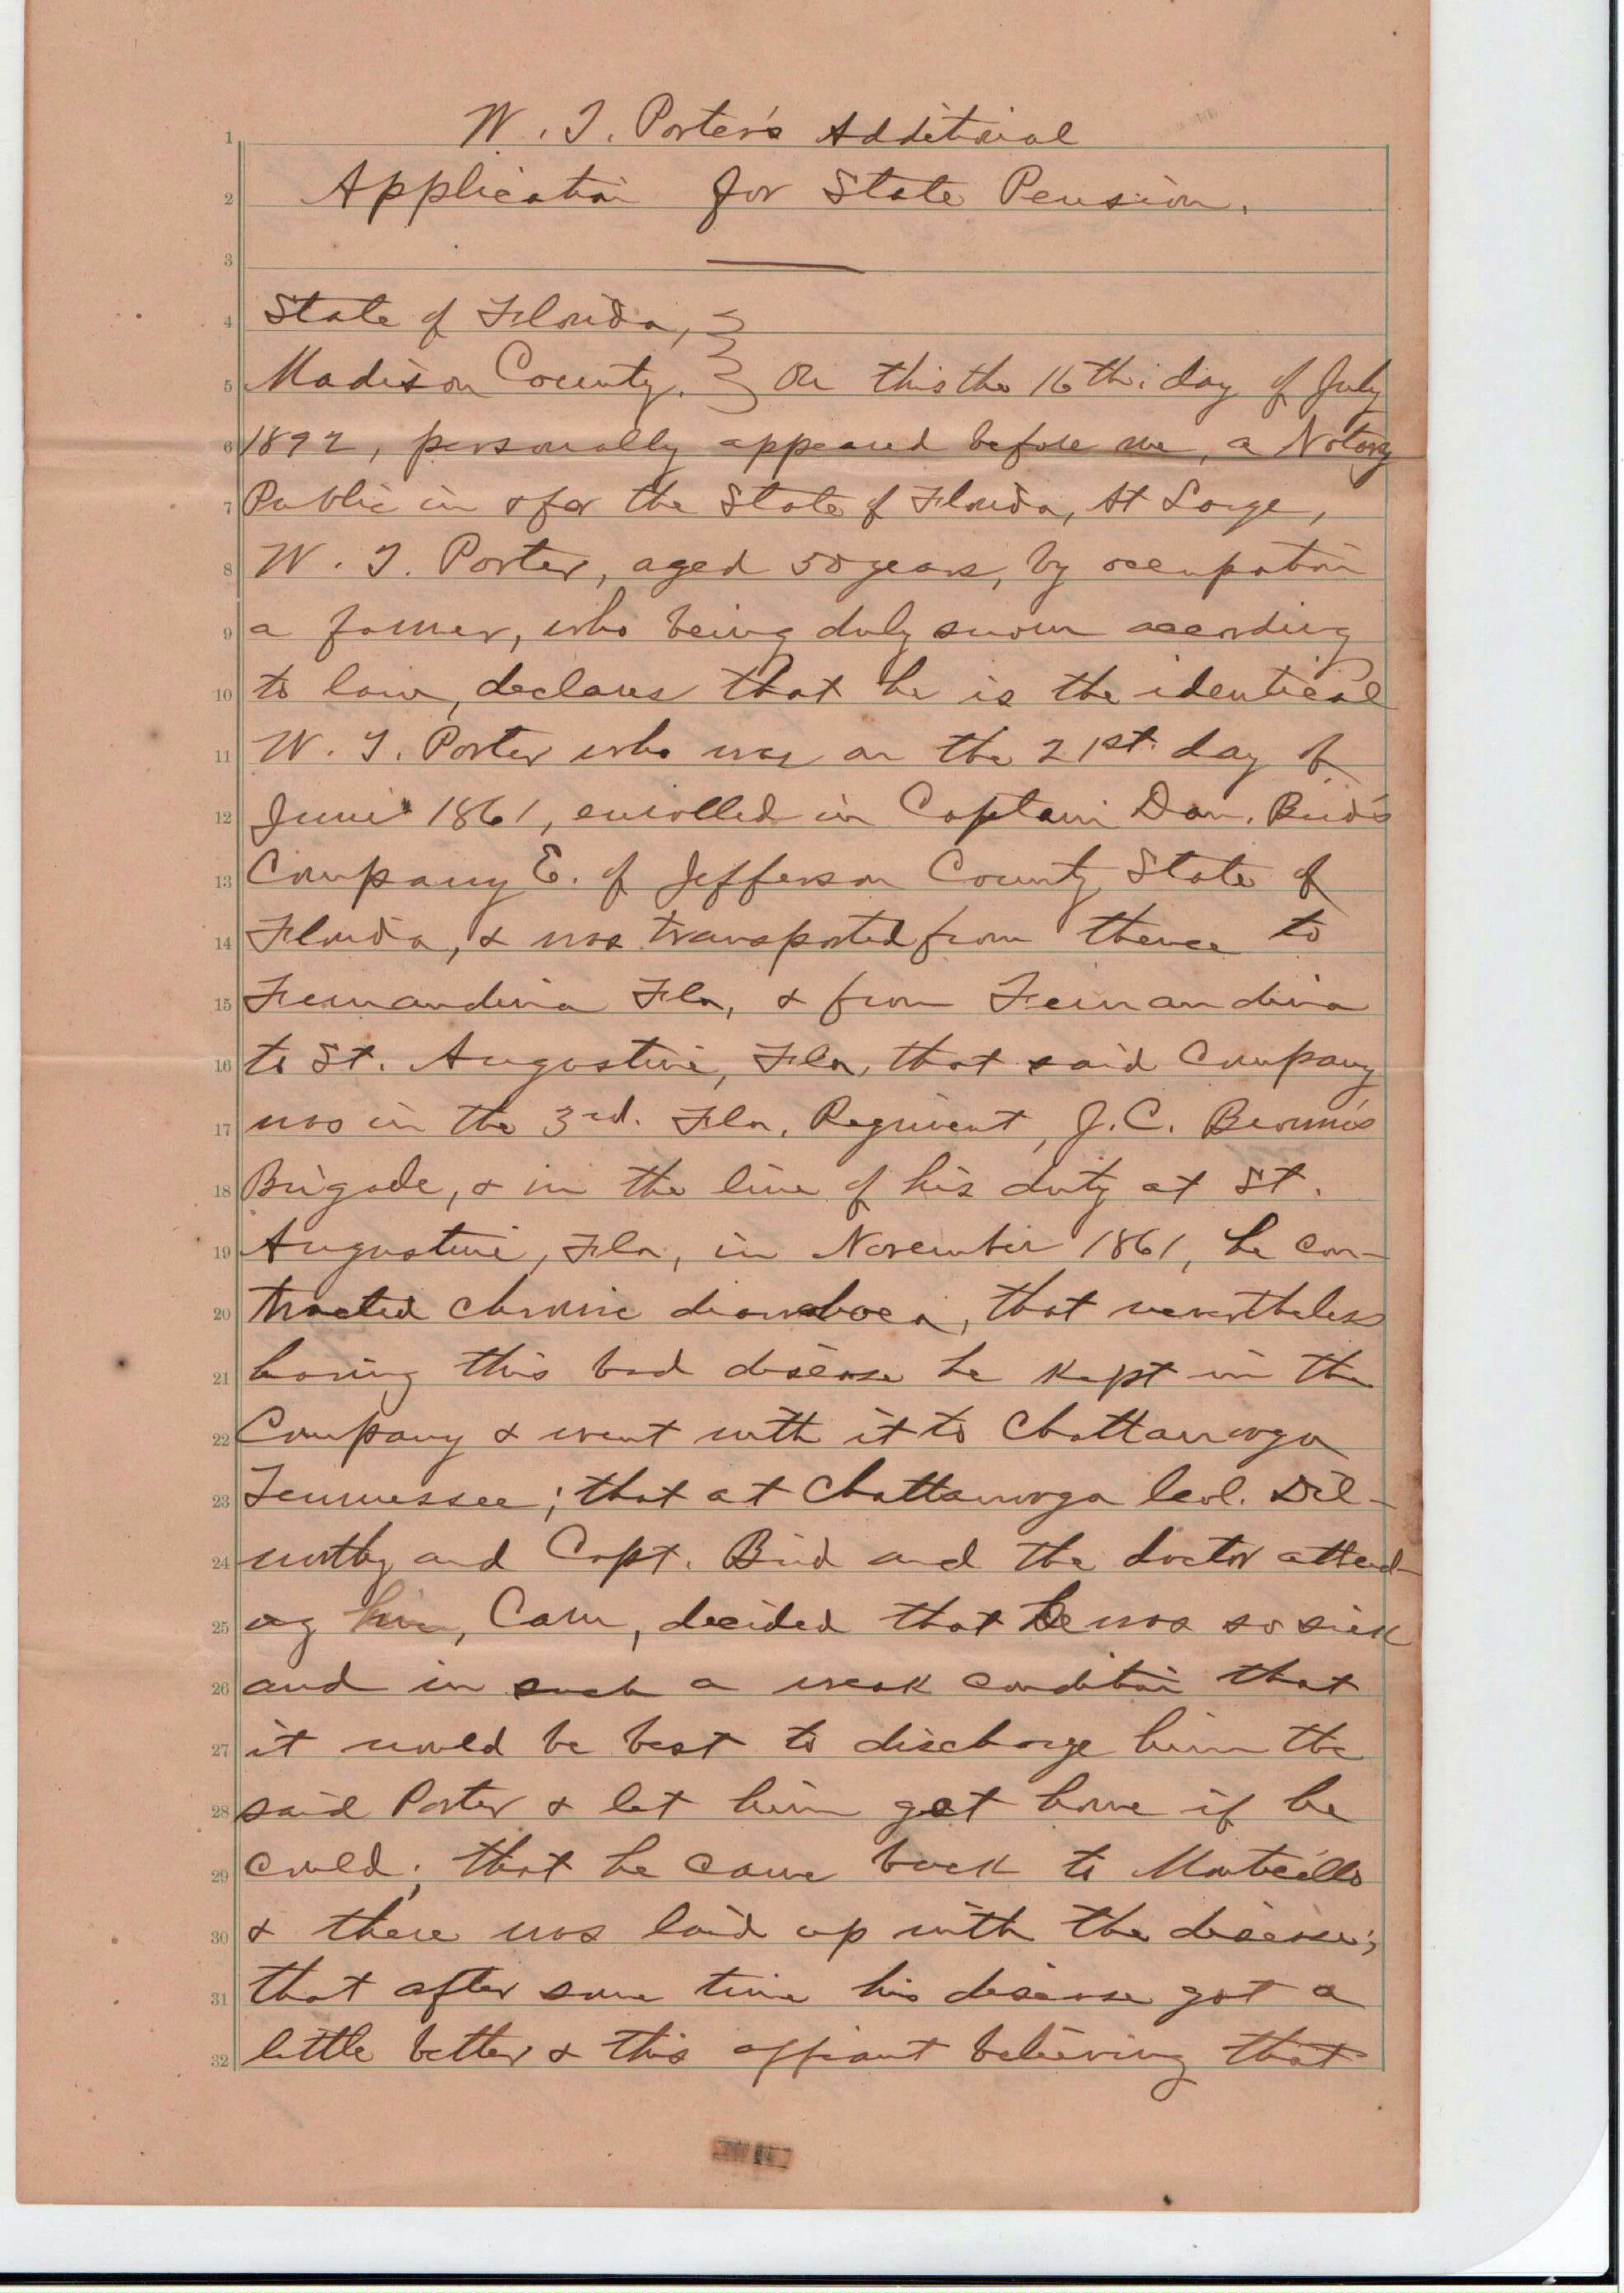 W. T. Porter's Additional
Application for State Pension.
State of Florida,
Madison County. On this the 16th. day of July
1892, personally appeared before me, a Notary
Public in & for the State of Florida, At Large,
W. T. Porter, aged 50 years, by occupation
a farmer, who being duly sworn according
to law, declares that he is the identical
W. T. Porter who was on the 21st. day of
June 1861, enrolled in Captain Dan. Bird's
Company E. of Jefferson County State of
Florida, & was transported from thence to
Fernandina Fla, & from Fernandina
to St. Augustine, Fla, that said Company
was in the 3rd. Fla. Regiment, J.C.
Brigade, & in the line of his duty at St.
Augustine, Fla, in November 1861, he con-
tracted chronic diarrhoea, that nevertheless
having this bad disease he kept in the
Company & went with it to Chattanooga
Tennessee; that at Chattanooga Col. Dil-
worthy and Capt. Bird and the doctor attend-
ing him, Carn, decided that he was so sick
and in such a weak condition that
it would be best to discharge him the
said Porter & let him get home if he
could; that he came back to Monticello
& there was laid up with the disease;
that after some time his disease got a
little better & this affiant believing that